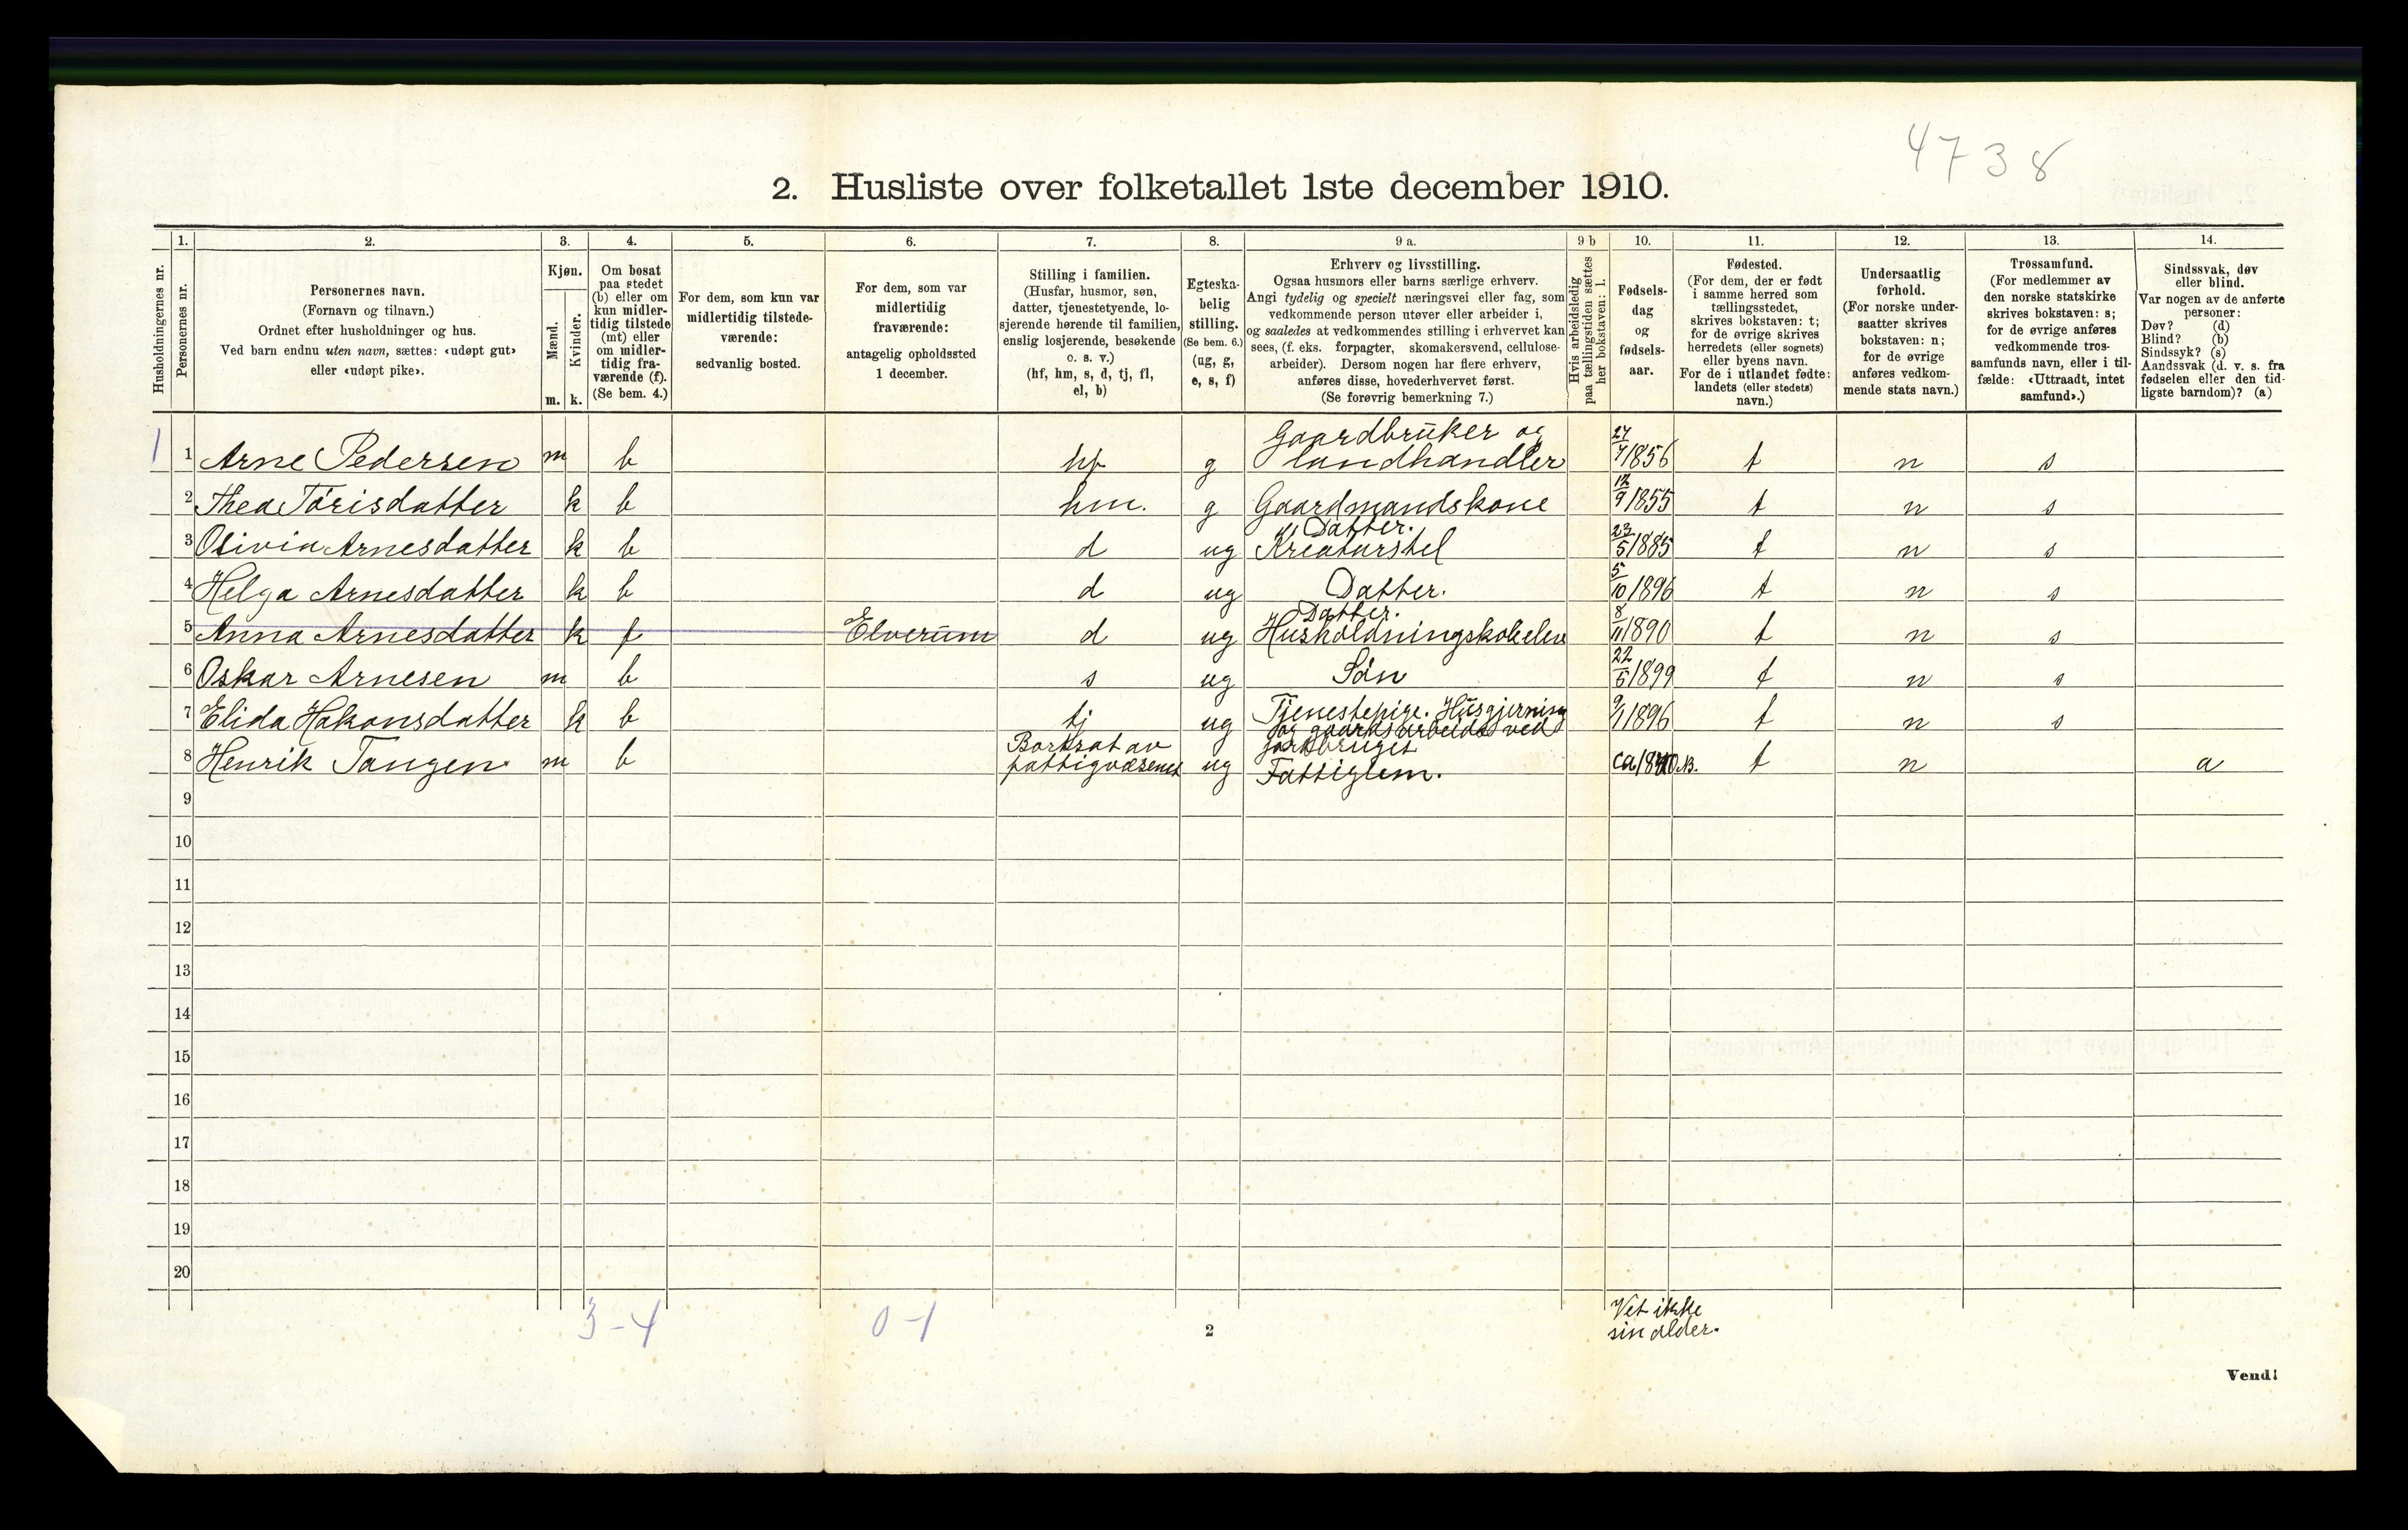 4738
2. Husliste over folketallet 1ste december 1910.
1. 2. 3. 4. 5. 6. 7. 8. 9 a. 9 b 10. 11. 12. 13. 14.
Husholdningernes nr.
Personernes nr.
Personernes navn.
(Fornavn og tilnavn.)
Ordnet efter husholdninger og hus.
Ved barn endnu uten navn, sættes: «udøpt gut»
eller «udøpt pike».
Kjøn.
Mænd.
Kvinder.
m. k.
Om bosat
paa stedet
(b) eller om
kun midler-
tidig tilstede
(mt) eller
om midler-
tidig fra-
værende (f).
(Se bem. 4.)
For dem, som kun var
midlertidig tilstede-
værende:
sedvanlig bosted.
For dem, som var
midlertidig
fraværende:
antagelig opholdssted
1 december.
Stilling i familien.
(Husfar, husmor, søn,
datter, tjenestetyende, lo-
sjerende hørende til familien,
enslig losjerende, besøkende
o. s. v.)
(hf, hm, s, d, tj, fl,
el, b)
Egteska-
belig
stilling.
(Se bem. 6.)
(ug, g,
e, s, f)
Erhverv og livsstilling.
Ogsaa husmors eller barns særlige erhverv.
Angi tydelig og specielt næringsvei eller fag, som
vedkommende person utøver eller arbeider i,
og saaledes at vedkommendes stilling i erhvervet kan
sees, (f. eks. forpagter, skomakersvend, cellulose-
arbeider). Dersom nogen har flere erhverv,
anføres disse, hovederhvervet først.
(Se forøvrig bemerkning 7.)
Hvis arbeidsledig
paa tællingstiden sættes
her bokstaven: l.
Fødsels-
dag
og
fødsels-
aar.
Fødested.
(For dem, der er født
i samme herred som
tællingsstedet,
skrives bokstaven: t;
for de øvrige skrives
herredets (eller sognets)
eller byens navn.
For de i utlandet fødte:
landets (eller stedets)
navn.)
Undersaatlig
forhold.
(For norske under-
saatter skrives
bokstaven: n;
for de øvrige
anføres vedkom-
mende stats navn.)
Trossamfund.
(For medlemmer av
den norske statskirke
skrives bokstaven: s;
for de øvrige anføres
vedkommende tros-
samfunds navn, eller i til-
fælde: «Uttraadt, intet
samfund».)
Sindssvak, døv
eller blind.
Var nogen av de anførte
personer:
Døv? (d)
Blind? (b)
Sindssyk? (s)
Aandssvak (d. v. s. fra
fødselen eller den tid-
ligste barndom)? (a)
1 1 Arne Pedersen m b hf g Gaardbruker og landhandler 1856 t n s
2 Thea Torisdatter k b hm. g Gaardmandskone 12/9 1855 t n s
3 Olivia Arnesdatter k b d ug Datter. Kreaturstel 23/5 1885 t n s
4 Helga Arnesdatter k b d ug Datter. 5/10 1896 t n s
5 Anna Arnesdatter k f Elverum d ug Datter. Husholdningskoleelev 8/11 1890 t n s
6 Oskar Arnesen m b s ug Søn 22/5 1899 t n s
7 Elida Hakonsdatter k b tj ug Tjenestepige. Husgjerning og gaardsarbeide ved jordbruget 9/1 1896 t n s
8 Henrik Tangen m b Bortsat av fattigvæsenet ug Fattiglem. ca 1840 NB. t n a
9
10
11
12
13
14
15
16
17
18
19
20
3-4 0-1
2
Vet ikke
sin alder.
Vend!